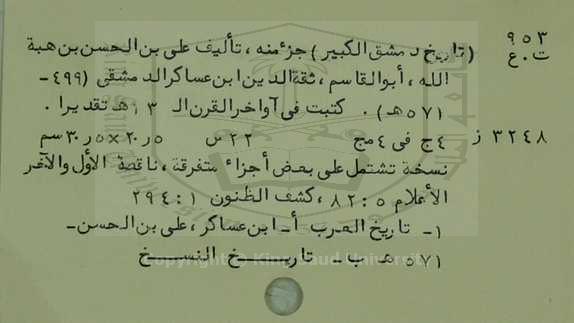 ٩٥٣
ت . ع
( تاريخ دمشق الكبير ) جزء منه ، تأليف على بن الحسن بن هبة
الله ، أبو القاسم ، ثقة الدين ابن عساكر الدمشقى ( ٤٩٩ ـ
٥٧١ هـ ) . كتبت فى أواخر القرن الـ ١٣ هـ تقديرا .
٣٢٤٨ ز ٤ج فى ٤ مج ٢٢ س ٥ر٢٠×٥ر٣٠ سم
نسخة تشتمل على بعض أجزاء متفرقة ، ناقصة الأول والآخر
الأعلام ٥ : ٨٢ ، كشف الظنون ١ : ٢٩٤
١- تاريخ العرب أ ـ ابن عساكر ، على بن الحسن ـ
٥٧١ هـ ب ـ تاريـخ النسـخ
Copyright © King Saud University